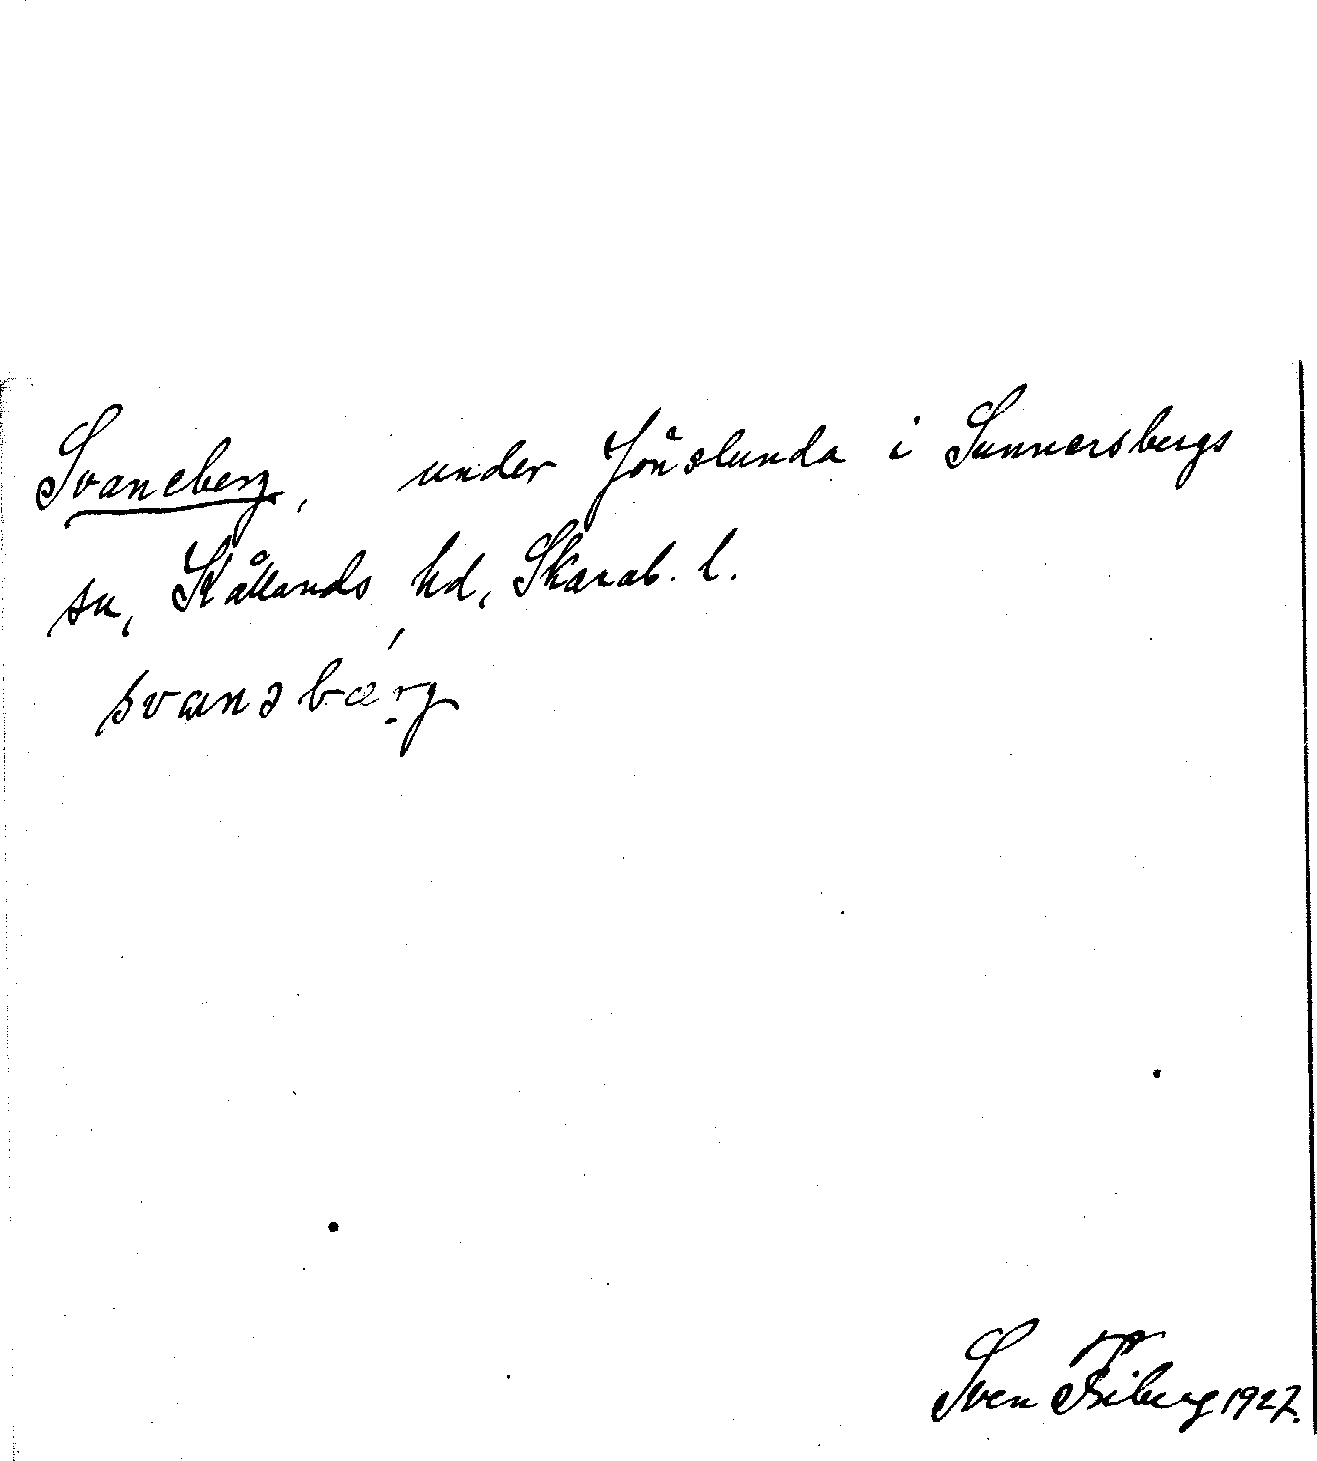 Svaneberg, under Jönslunda i Sunnersbergs
sn, Kållands hd, Skarab. l.
svanəbærg
Sven Friberg 1927.